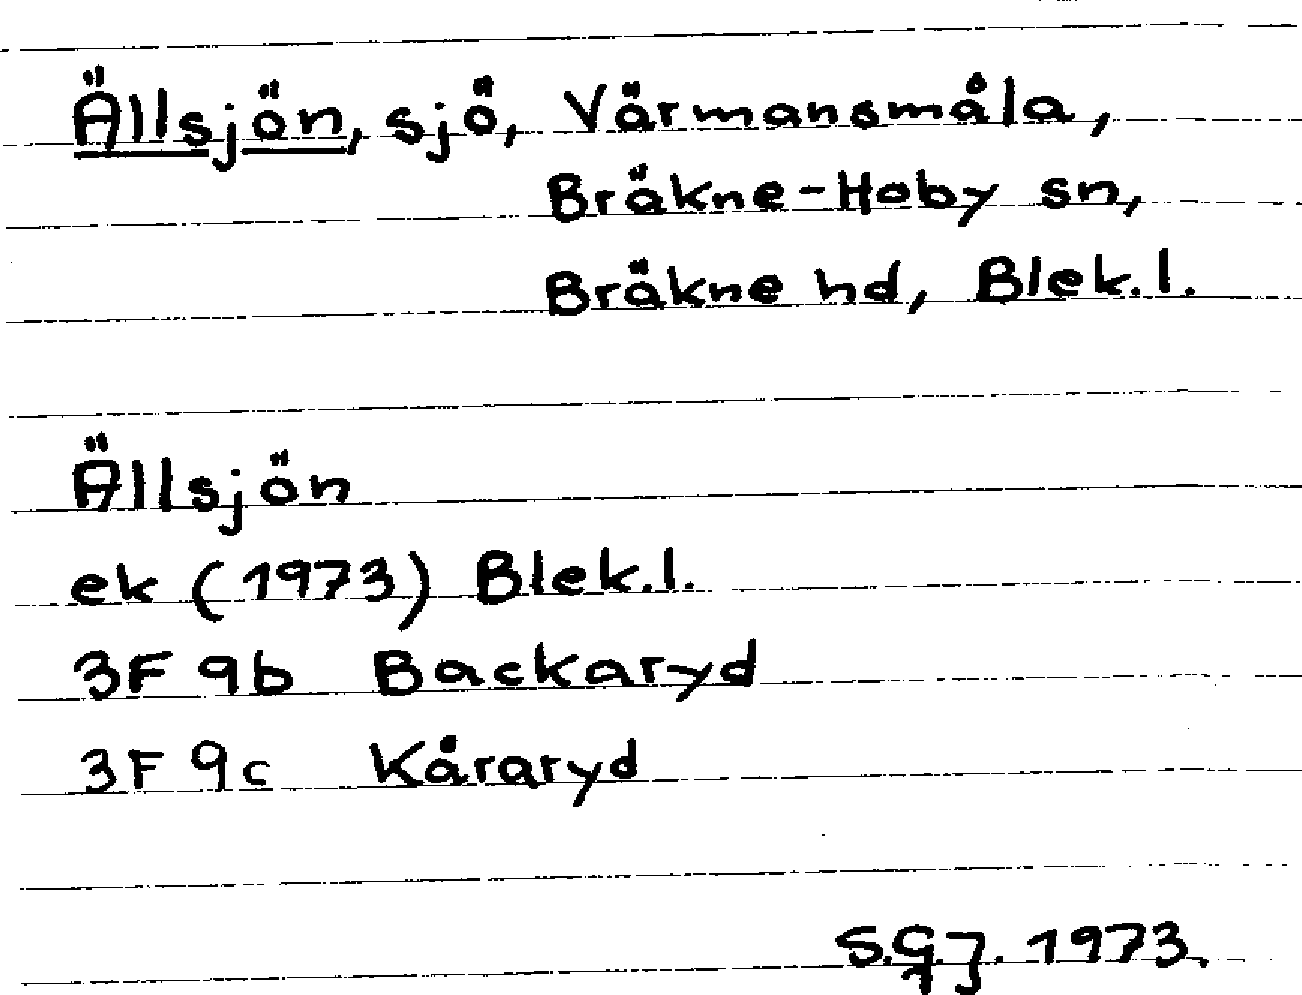 Ällsjön, sjö, Värmansmåla,
Bräkne-Hoby sn,
Bräkne hd, Blek.l.
Ällsjön
ek (1973) Blek.l.
3F 9b Backaryd
3F 9c Kåraryd
S.G.J. 1973.